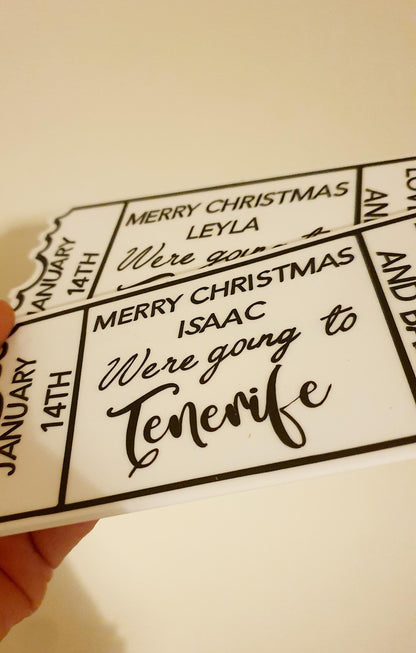 JANUARY
14TH
MERRY CHRISTMAS
LEYLA
We're going to
JANUARY
14TH
MERRY CHRISTMAS
ISAAC
We're going to
Tenerife
AND